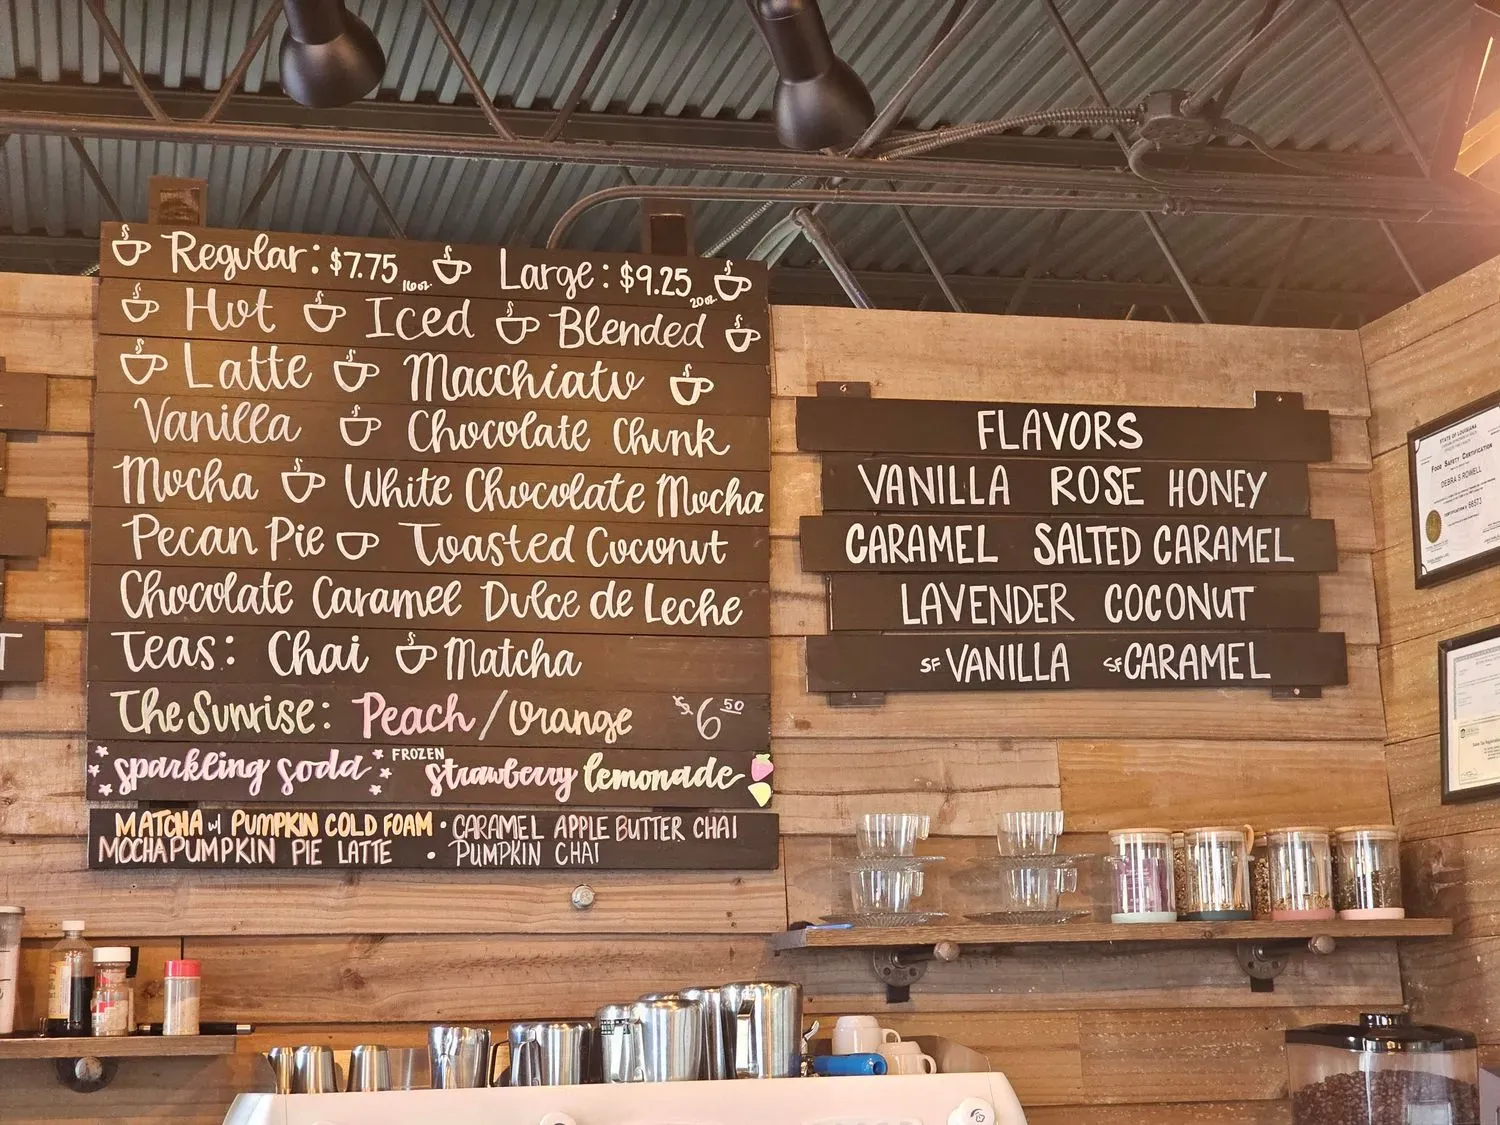 Regular: $7.75 16oz. Large: $9.25 20oz.
Hot Iced Blended
Latte Macchiato
Vanilla Chocolate Chunk
Mocha White Chocolate Mocha
Pecan Pie Toasted Coconut
Chocolate Caramel Dulce de Leche
Teas: Chai Matcha
The Sunrise: Peach / Orange $6 50
sparkling soda FROZEN strawberry lemonade
MATCHA w/ PUMPKIN COLD FOAM • CARAMEL APPLE BUTTER CHAI
MOCHA PUMPKIN PIE LATTE • PUMPKIN CHAI
FLAVORS
VANILLA ROSE HONEY
CARAMEL SALTED CARAMEL
LAVENDER COCONUT
SF VANILLA SF CARAMEL
T
STATE OF LOUISIANA
FOOD SAFETY CERTIFICATION
DEBRA S ROWELL
66573